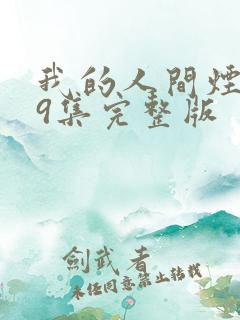 我的人間煙
9集完整版
劍武者
未任同意禁止轉載